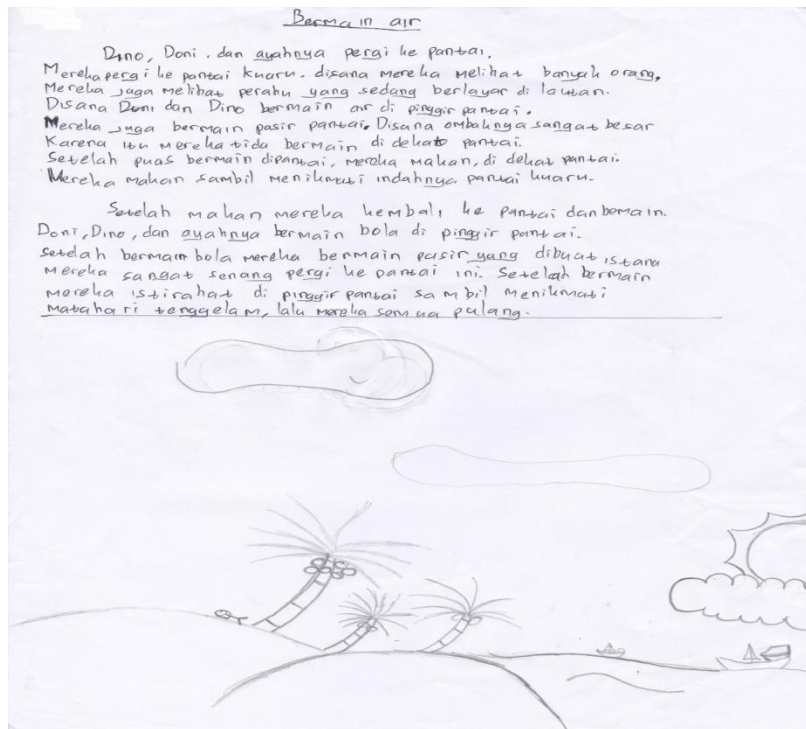 Bermain air
Dino, Doni, dan ayahnya pergi ke pantai.
Mereka pergi ke pantai kuaru. disana mereka melihat banyak orang.
Mereka juga melihat perahu yang sedang berlayar di lautan.
Disana Doni dan Dino bermain air di pinggir pantai.
Mereka juga bermain pasir pantai. Disana ombaknya sangat besar
Karena itu mereka tida bermain di dekat pantai.
Setelah puas bermain dipantai, mereka makan, di dekat pantai.
Mereka makan sambil menikmati indahnya pantai kuaru.
Setelah makan mereka kembali ke pantai dan bemain.
Doni, Dino, dan ayahnya bermain bola di pinggir pantai.
Setelah bermain bola mereka bermain pasir yang dibuat istana
Mereka sangat senang pergi ke pantai ini. Setelah bermain
mereka istirahat di pinggir pantai sambil menikmati
matahari tenggelam, lalu mereka semua pulang.